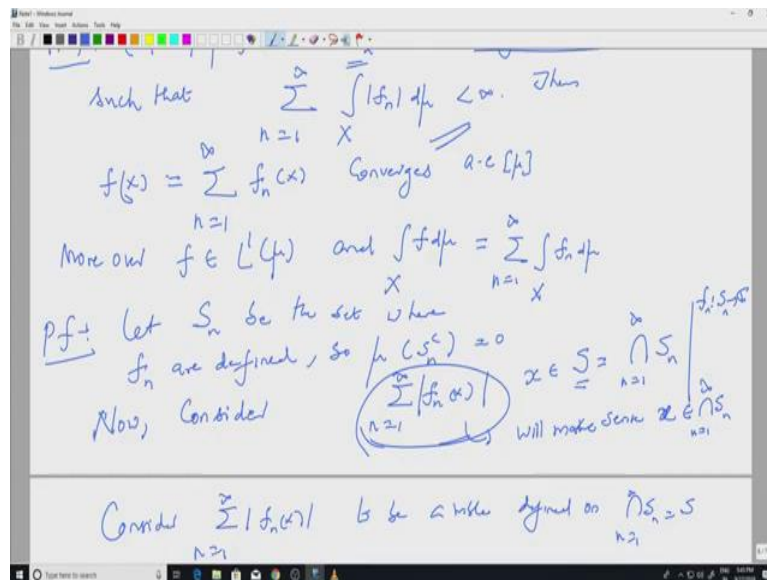 Note1 - Windows Journal
File Edit View Insert Actions Tools Help
such that ∑_{n=1}^∞ ∫_X |f_n| dμ < ∞. Then
f(x) = ∑_{n=1}^∞ f_n(x) Converges a.e [μ]
More over f ∈ L^1(μ) and ∫_X f dμ = ∑_{n=1}^∞ ∫_X f_n dμ
Pf: Let S_n be the set where
f_n are defined, so μ(S_n^c) = 0
Now, Consider ∑_{n=1}^∞ |f_n(x)| x ∈ S = ⋂_{n=1}^∞ S_n
will make sense x ∈ ⋂_{n=1}^∞ S_n
Consider ∑_{n=1}^∞ |f_n(x)| to be a defined on ⋂_{n=1}^∞ S_n = S